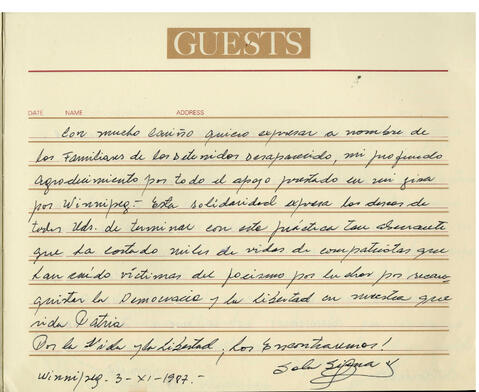 GUESTS
DATE NAME ADDRESS
Con mucho cariño quiero expresar a nombre de
los Familiares de los Detenidos Desaparecido, mi profundo
agradecimiento por todo el apoyo prestado en mi gira
por Winnipeg - Esta solidaridad expresa los deseos de
todos Uds. de terminar con esta práctica tan
que ha costado miles de vidas de compatriotas que
han caído víctimas del facismo por luchar por recon-
quistar la Democracia y la libertad en nuestra que
rida Patria
Por la Vida y la libertad, los Encontraremos!
Sola Sierra
Winnipeg - 3 - XI - 1987.-